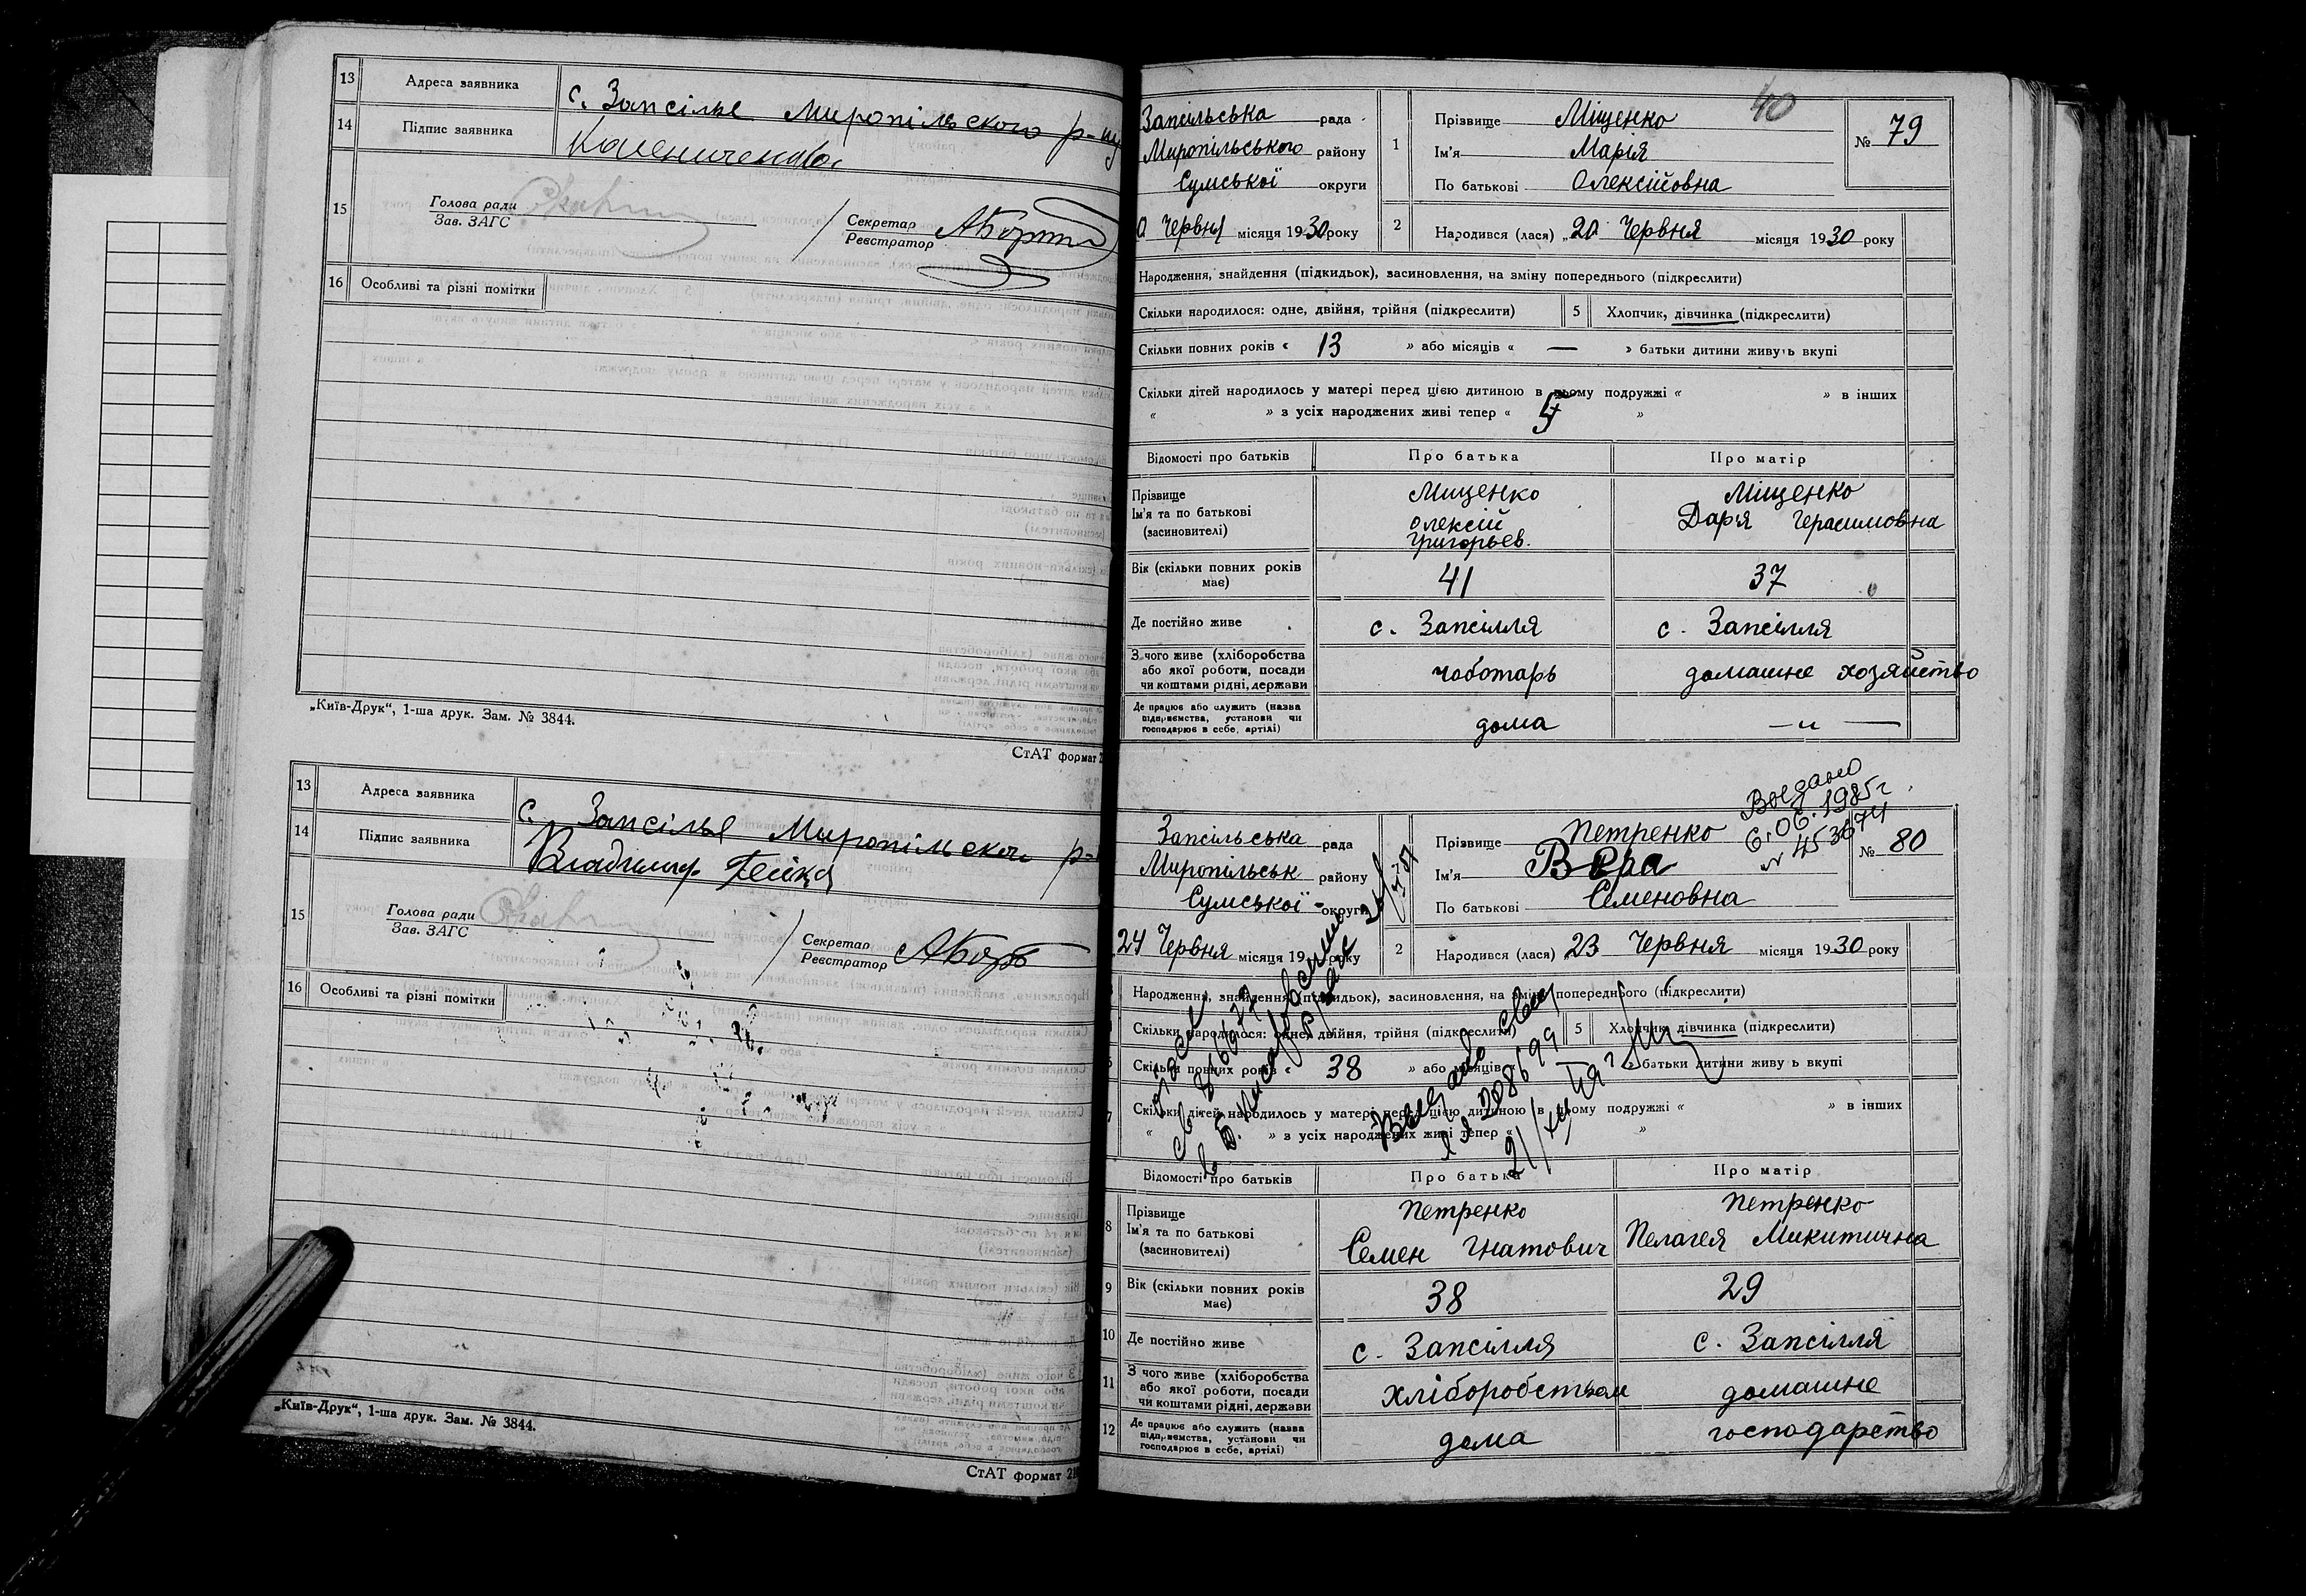 13 Адреса заявника с. Запсілье Миропільского р-ну
14 Підпис заявника
15 Голова ради
Зав. ЗАГС
Секретар
Реєстратор
16 Особливі та різні помітки
„Київ-Друк“, 1-ша друк. Зам. № 3844.
СтАТ формат
13 Адреса заявника с. Запсілье Миропільског р-
14 Підпис заявника Владимир
15 Голова ради
Зав. ЗАГС
Секретар
Реєстратор
16 Особливі та різні помітки
„Київ-Друк“, 1-ша друк. Зам. № 3844.
СтАТ формат
40
Запсільська рада
Миропільського району
Сумської округи
Червня місяця 1930 року
1 Прізвище Міщенко
Ім'я Марія
По батькові Олексійовна
№ 79
2 Народився (лася) „20 Червня місяця 1930 року
Народження, знайдення (підкидьок), засиновлення, на зміну попереднього (підкреслити)
Скільки народилося: одне, двійня, трійня (підкреслити) 5 Хлопчик, дівчинка (підкреслити)
Скільки повних років « 13 » або місяців « — » батьки дитини живуть вкупі
Скільки дітей народилось у матері перед цією дитиною в цьому подружжі « » в інших
« » з усіх народжених живі тепер « »
Відомості про батьків Про батька Про матір
Прізвище Мищенко Міщенко
Ім'я та по батькові Олексій Дар'я Герасимовна
(засиновителі) Григорьев.
Вік (скільки повних років має) 41 37
Де постійно живе с. Запсілля с. Запсілля
З чого живе (хліборобства
або якої роботи, посади чоботарь домашне хозяйство
чи коштами рідні, держави
Де працює або служить (назва
підприємства, установи чи дома — „ —
господарює в себе, артілі)
Запсільська рада
Миропільськ району
Сумської округи
24 Червня місяця 19 року
1 Прізвище Петренко
Ім'я Вера
По батькові Семеновна
№ 80
Выдано
6.06.1985г
2 Народився (лася) 23 Червня місяця 1930 року
Народження, знайдення (підкидьок), засиновлення, на зміну попереднього (підкреслити)
Скільки народилося: одне, двійня, трійня (підкреслити) 5 Хлопчик, дівчинка (підкреслити)
Скільки повних років « 38 » або місяців « » батьки дитини живу ь вкупі
7 Скільки дітей народилось у матері перед цією дитиною в цьому подружжі « » в інших
« » з усіх народжених живі тепер « »
Відомості про батьків Про батька Про матір
8 Прізвище Петренко Петренко
Ім'я та по батькові Семен Гнатович Пелагея Микитична
(засиновителі)
9 Вік (скільки повних років має) 38 29
10 Де постійно живе с. Запсілля с. Запсілля
11 З чого живе (хліборобства
або якої роботи, посади хліборобством домашне
чи коштами рідні, держави
12 Де працює або служить (назва
підприємства, установи чи дома господарство
господарює в себе, артілі)